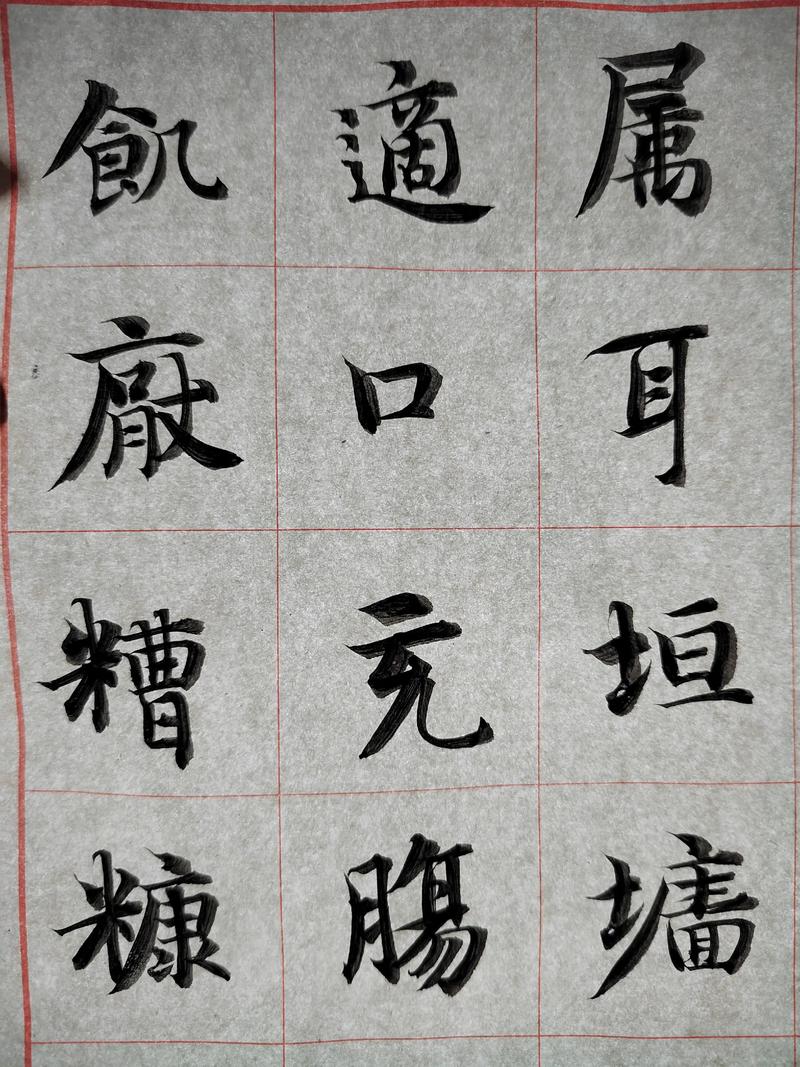 属耳垣墻
適口充腸
飢厭糟糠